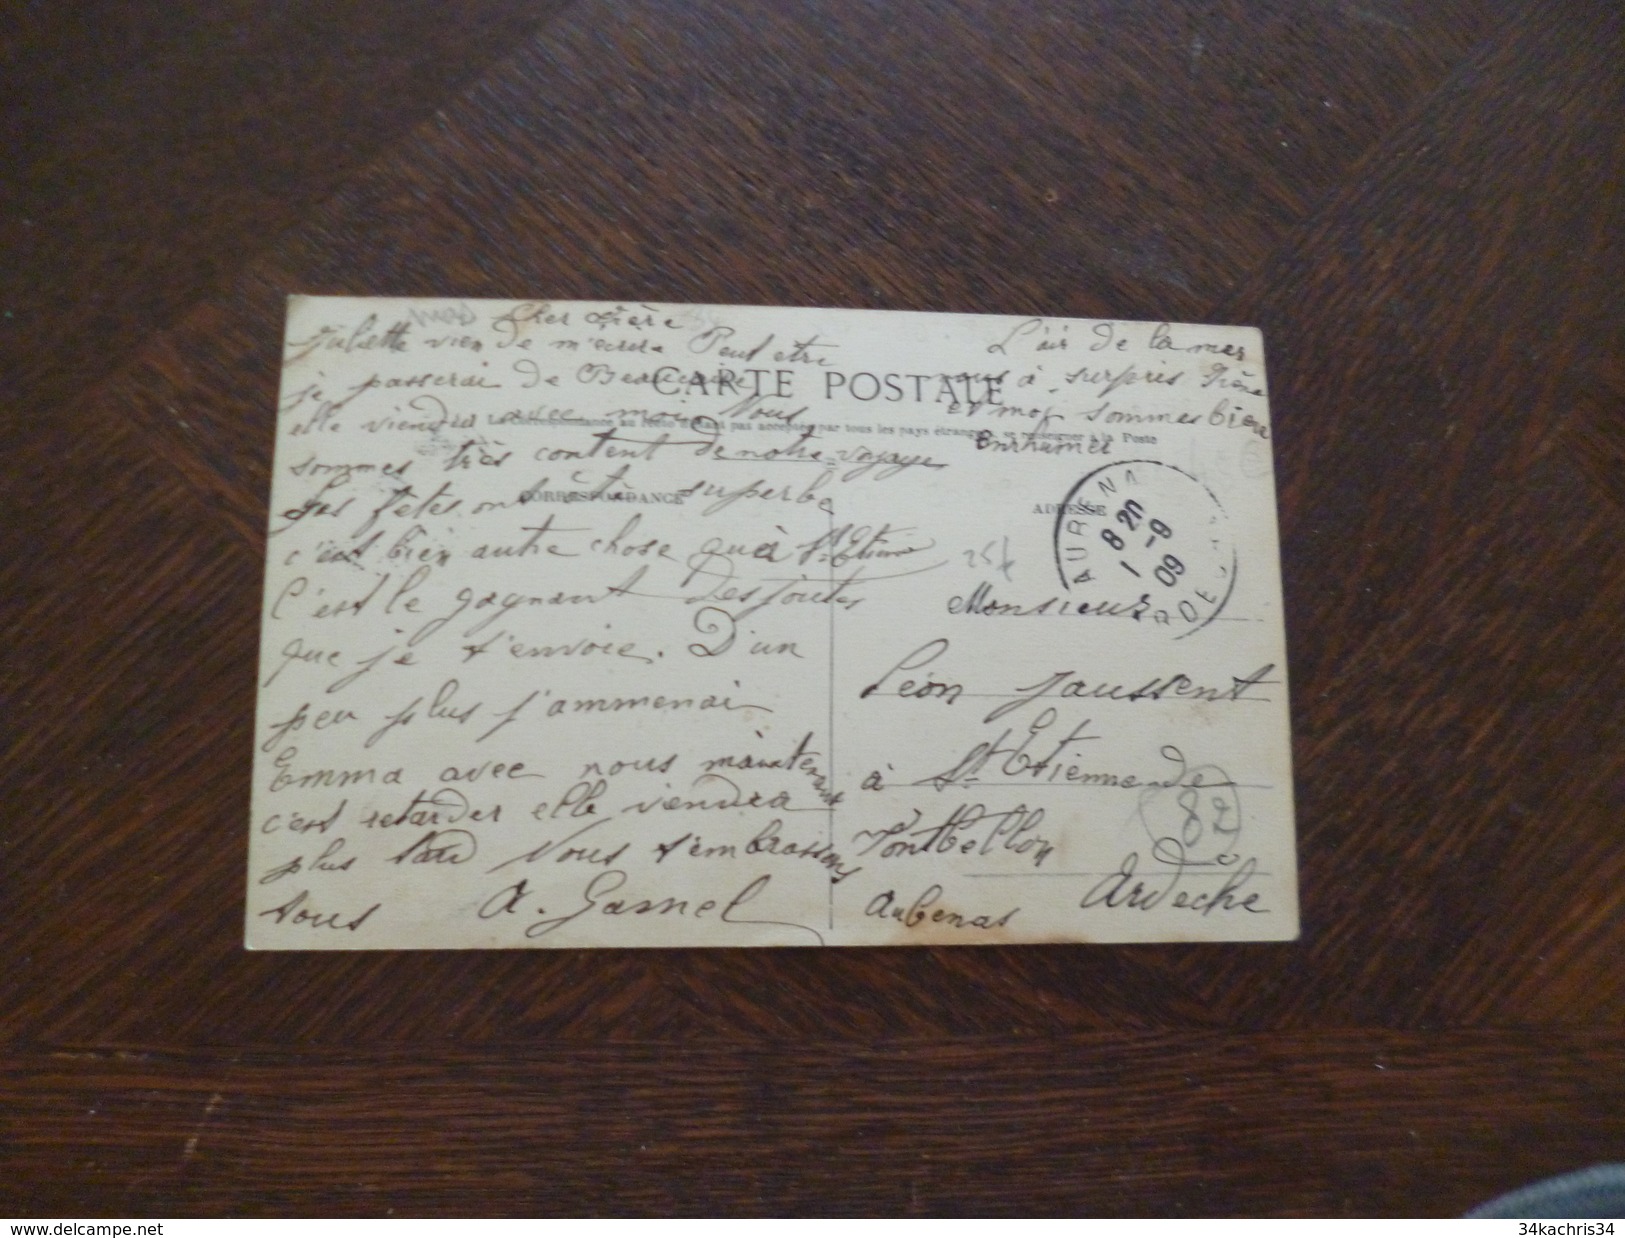 Cher Frère
Juliette vien de m'ecrire Peut être
je passerai de Beaucaire
elle viendra avec moi. Nous
sommes très content de notre voyage
Les fêtes ont été superbe
c'est bien autre chose qu'à St Etienne
C'est le gagnant des joutes
que je t'envoie. D'un
peu plus j'ammenai
Emma avec nous maintenant
c'est retarder elle viendra
plus tard Nous t'embrassons
tous A. Gamel
L'air de la mer
nous à surpris Irène
et moi sommes bien
enrhumés
CARTE POSTALE
La Correspondance au recto n'étant pas acceptée par tous les pays étrangers, se renseigner à la Poste
CORRESPONDANCE
ADRESSE
AUBENA
8 20
1 -9
09
ARDEC
25f
Monsieur
Léon Jaussent
à St Etienne de
Fontbellon
Aubenas Ardeche
82
delcampe.net
34kachris34